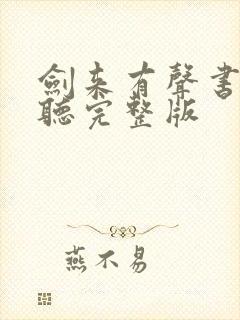 劍来有聲書
聽完整版
燕不易